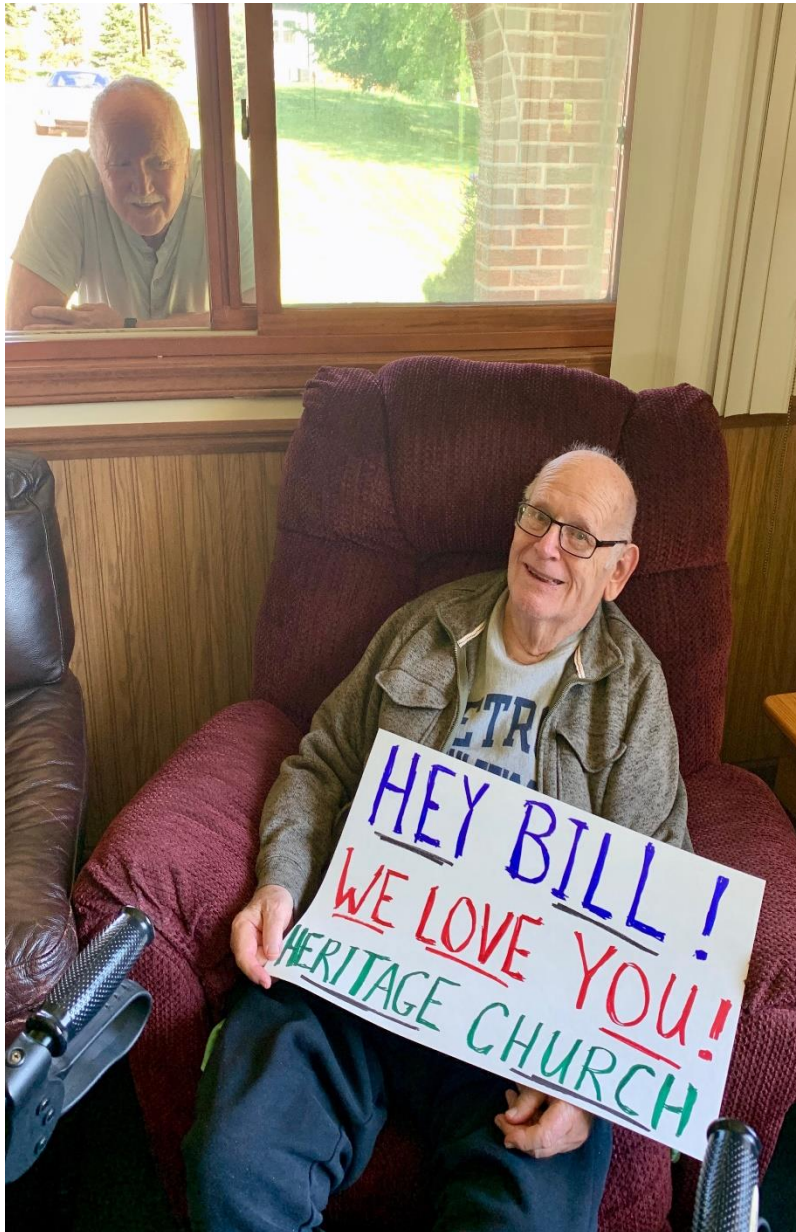 HEY BILL!
WE LOVE YOU!
HERITAGE CHURCH